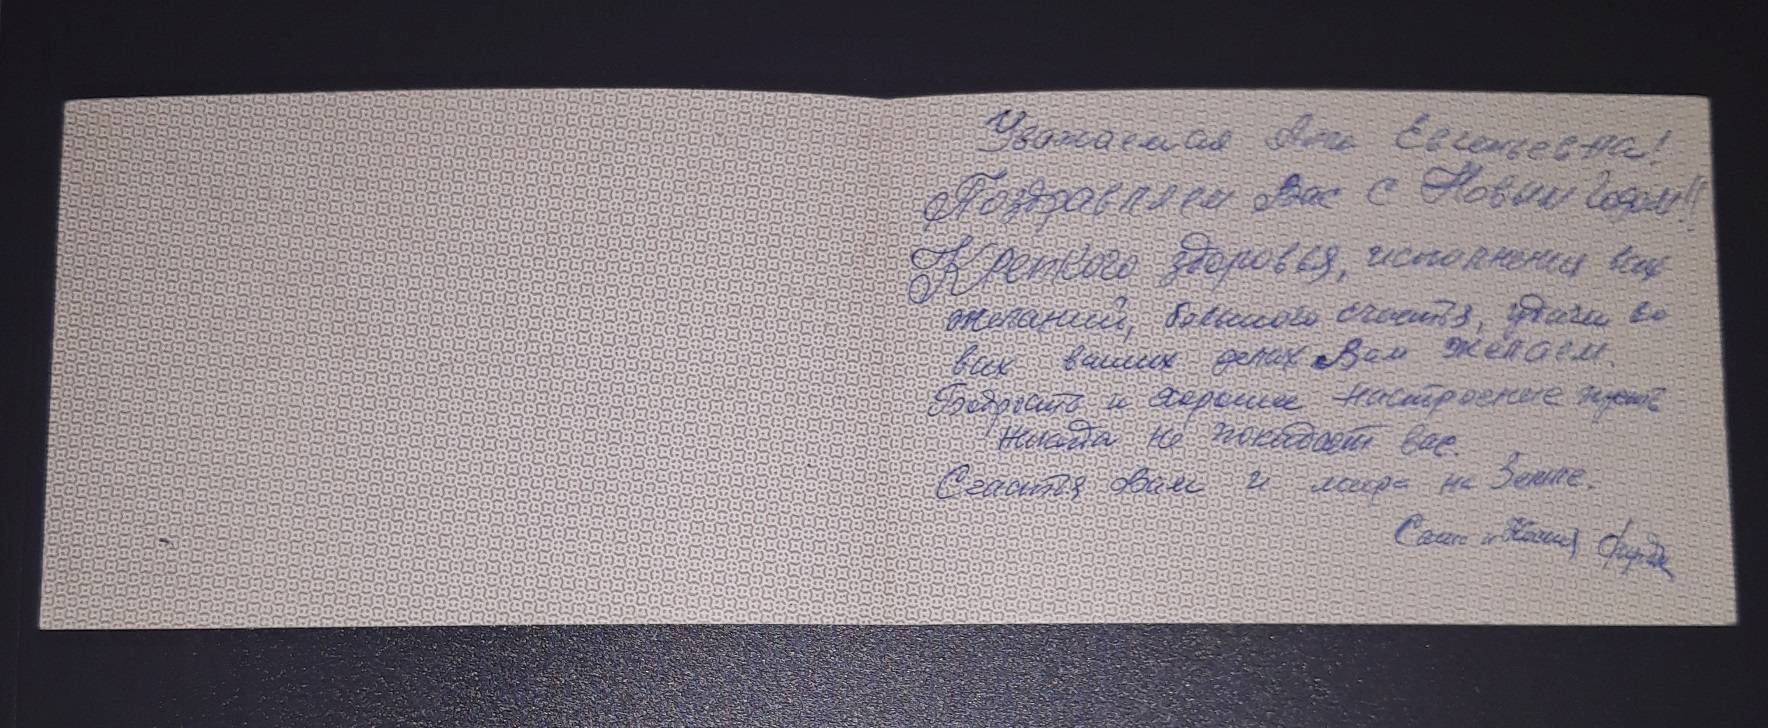 Уважаемая Евгеньевна!
Поздравляем Вас с Новым Годом!!
Крепкого здоровья, исполнения всех
желаний, большого счастья, удачи во
всех ваших делах Вам желаем.
Бодрость и хорошее настроение пусть
никогда не покидает вас.
Счастья Вам и мира на Земле.
и